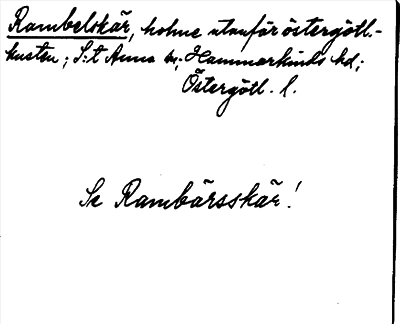 Rambelskär, holme utanför östergötl.-
kusten; S:t Anna sn; Hammarkinds hd;
Östergötl. l.
Se Rambärsskär!